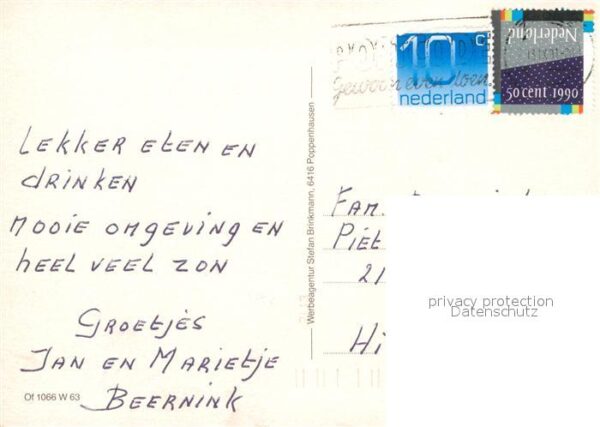 LEKKER ETEN EN
DRINKEN
MOOIE OMGEVING EN
HEEL VEEL ZON
GROETJES
JAN EN MARIETJE
BEERNINK
Of 1066 W 63
Werbeagentur Stefan Brinkmann, 6416 Poppenhausen
10 c
nederland
Nederland
50 cent 1990
gewoon even doen
FAM.
PIET
21
HI
privacy protection
Datenschutz